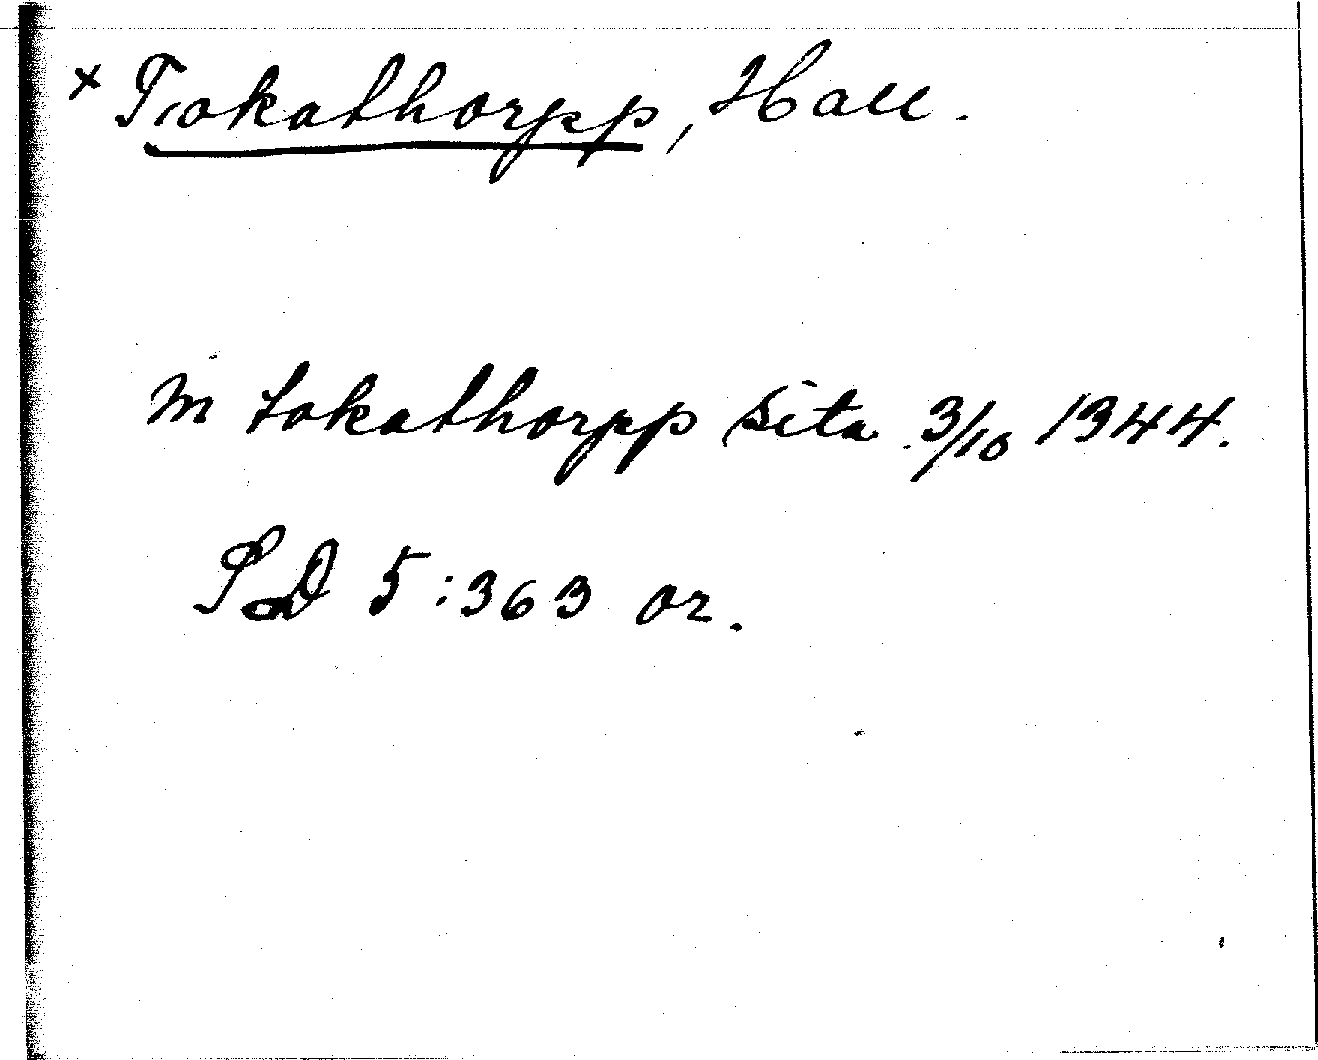 × Tokathorpp, Hall.
in tokathorpp sita 3/10 1344.
SD 5:363 or.